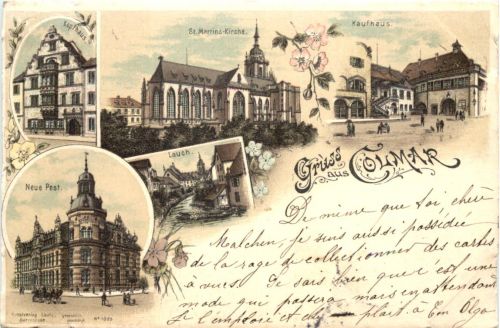 Kopfhaus.
St. Martins-Kirche.
Kaufhaus.
Lauch.
Neue Post.
Gruss
aus COLMAR
De même que toi chère
Malchen, je suis aussi possédée
de la rage de collectionner des cartes
à vues. Je sais bien que c'est une
mode qui passera mais en attendant
Je l'emploie et plait à Ton Olga